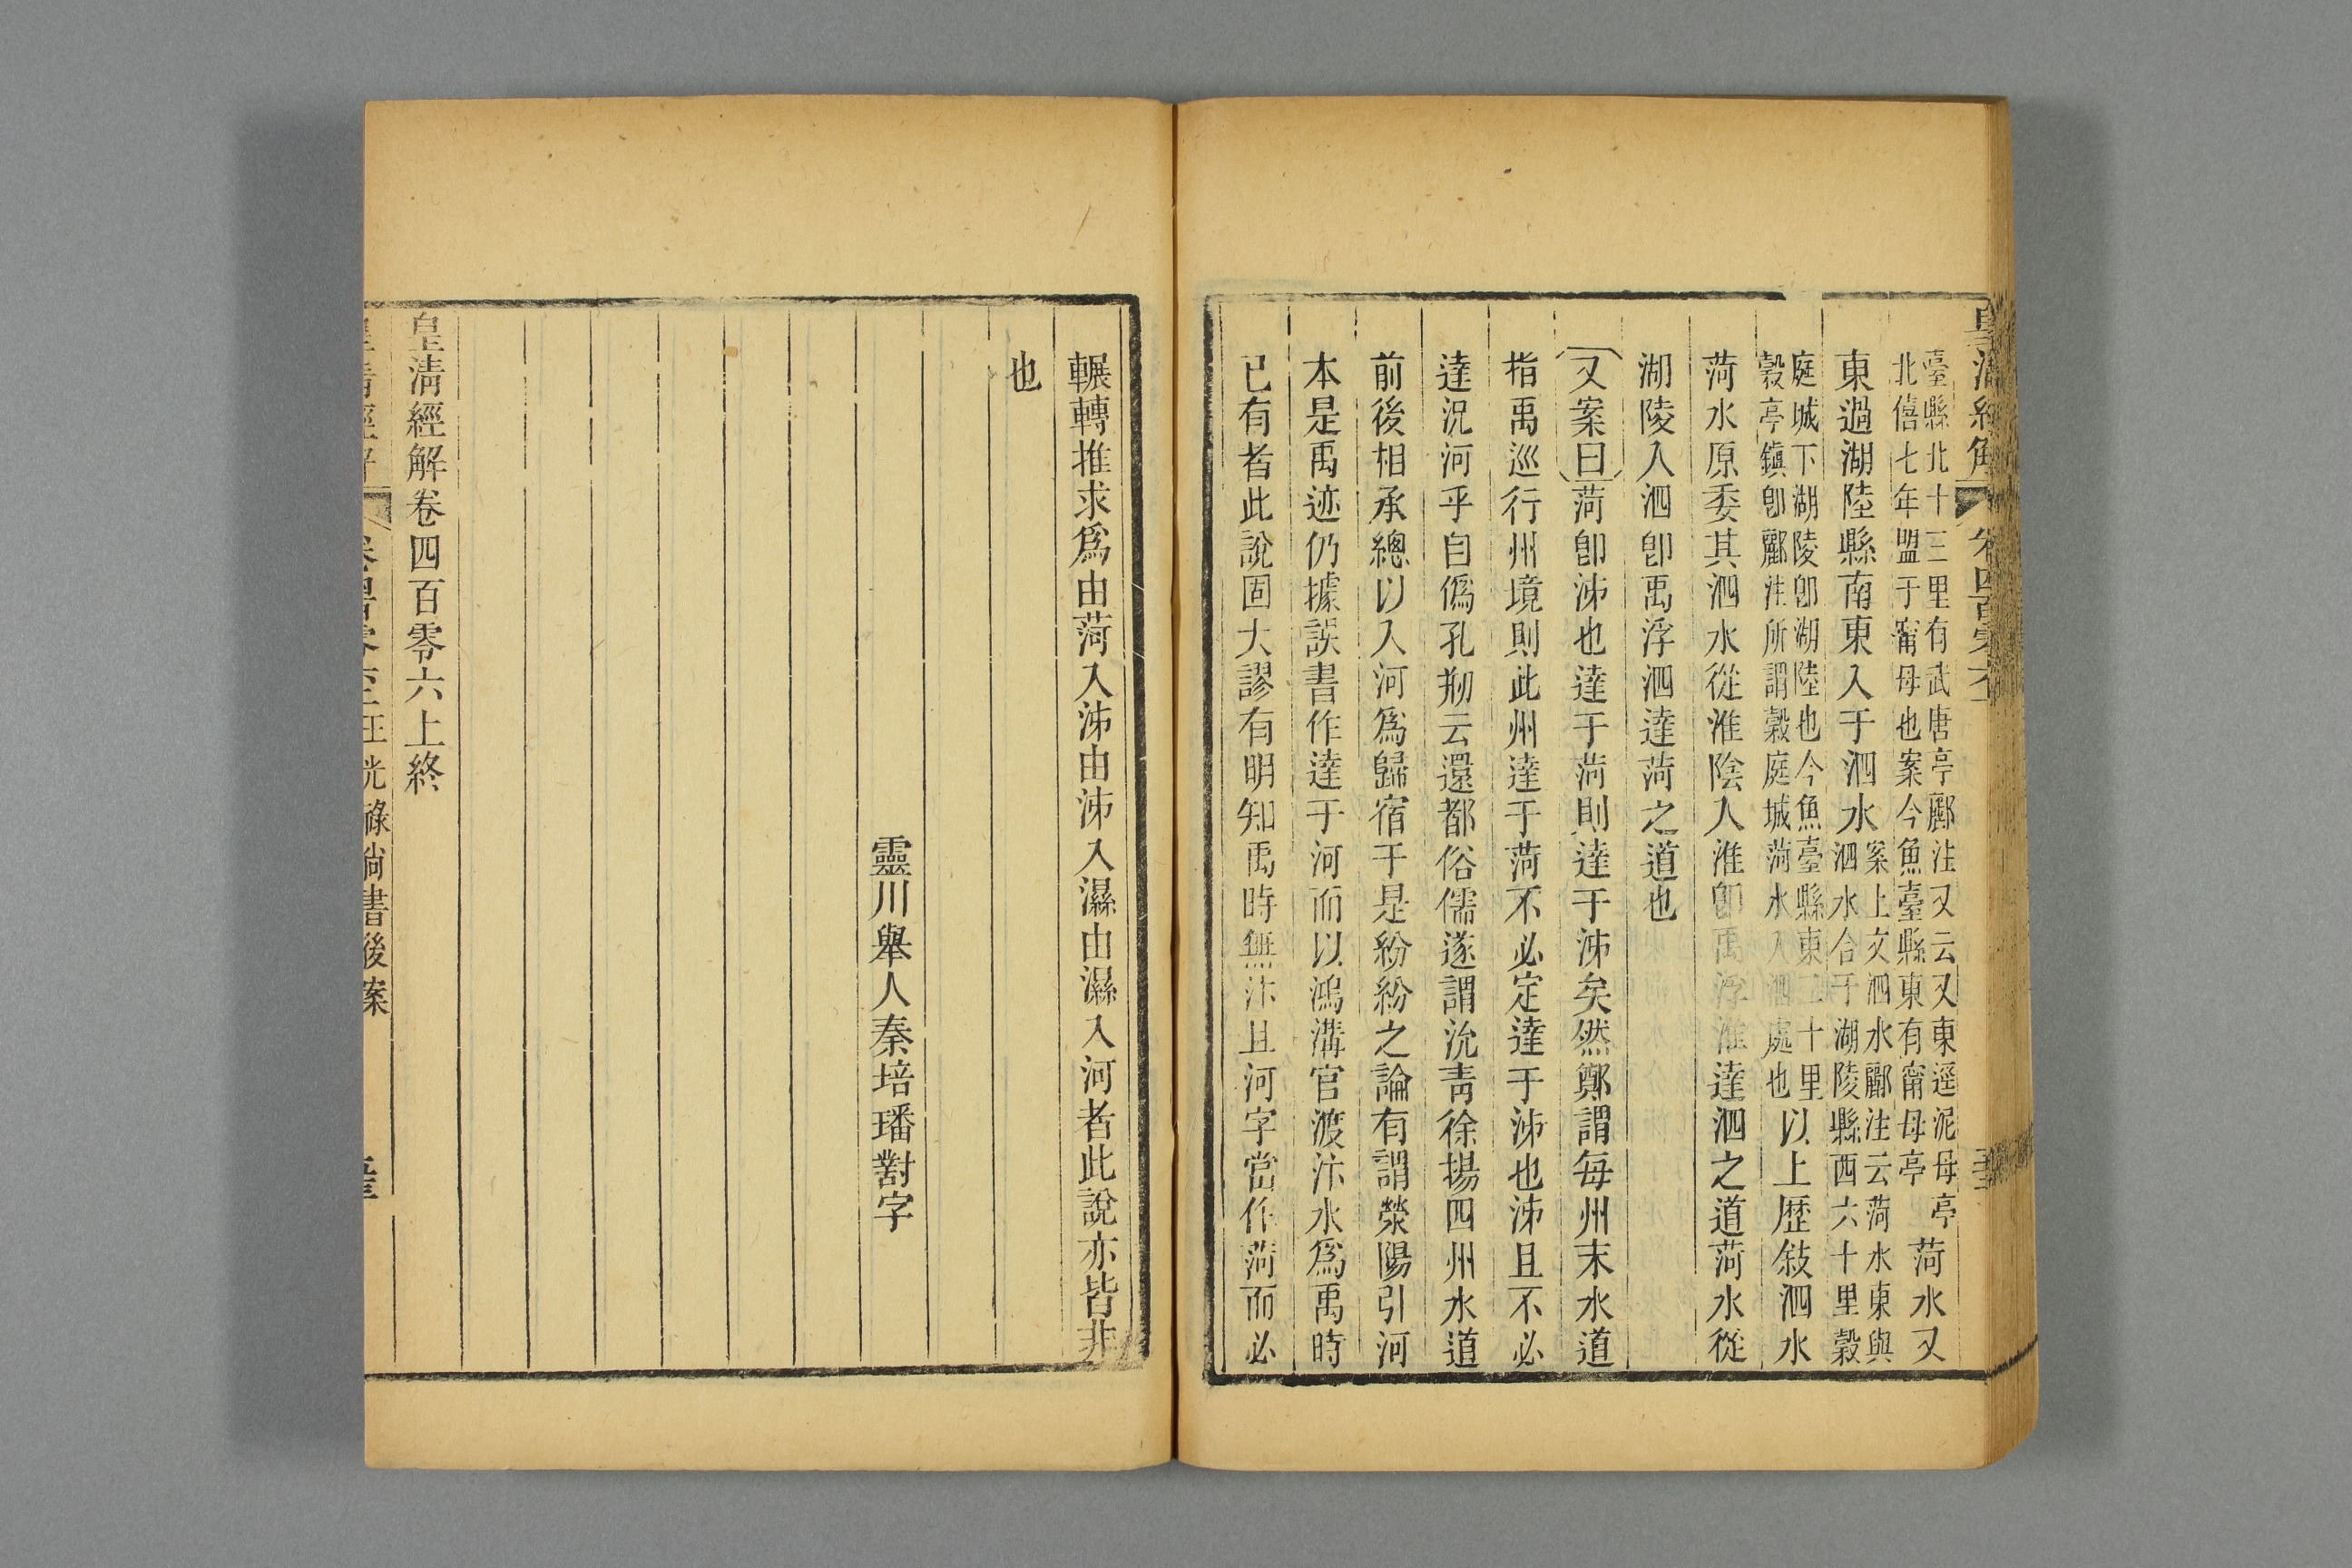 臺縣北十三里有武唐亭酈注又云又東逕泥母亭
北僖七年盟于甯母也案今魚臺縣東有甯母亭
菏水又
東過湖陸縣南東入于泗水
案上文泗水酈注云菏水東與
泗水合于湖陵縣西六十里穀
庭城下湖陵卽湖陸也今魚臺縣東二十里
穀亭鎮卽酈注所謂穀庭城菏水入泗處也
以上歴敍泗水
菏水原委其泗水從淮陰入淮卽禹浮淮達泗之道菏水從
湖陵入泗卽禹浮泗達菏之道也
又案曰菏卽泲也達于菏則達于泲矣然鄭謂每州末水道
指禹巡行州境則此州達于菏不必定達于泲也泲且不必
達況河乎自僞孔剏云還都俗儒遂謂沇靑徐揚四州水道
前後相承總以入河爲歸宿于是紛紛之論有謂滎陽引河
本是禹迹仍據誤書作達于河而以鴻溝官渡汴水爲禹時
已有者此說固大謬有明知禹時無汴且河字當作菏而必
輾轉推求爲由菏入泲由泲入濕由濕入河者此說亦皆非
也
靈川舉人秦培璠對字
皇清經解卷四百零六上終